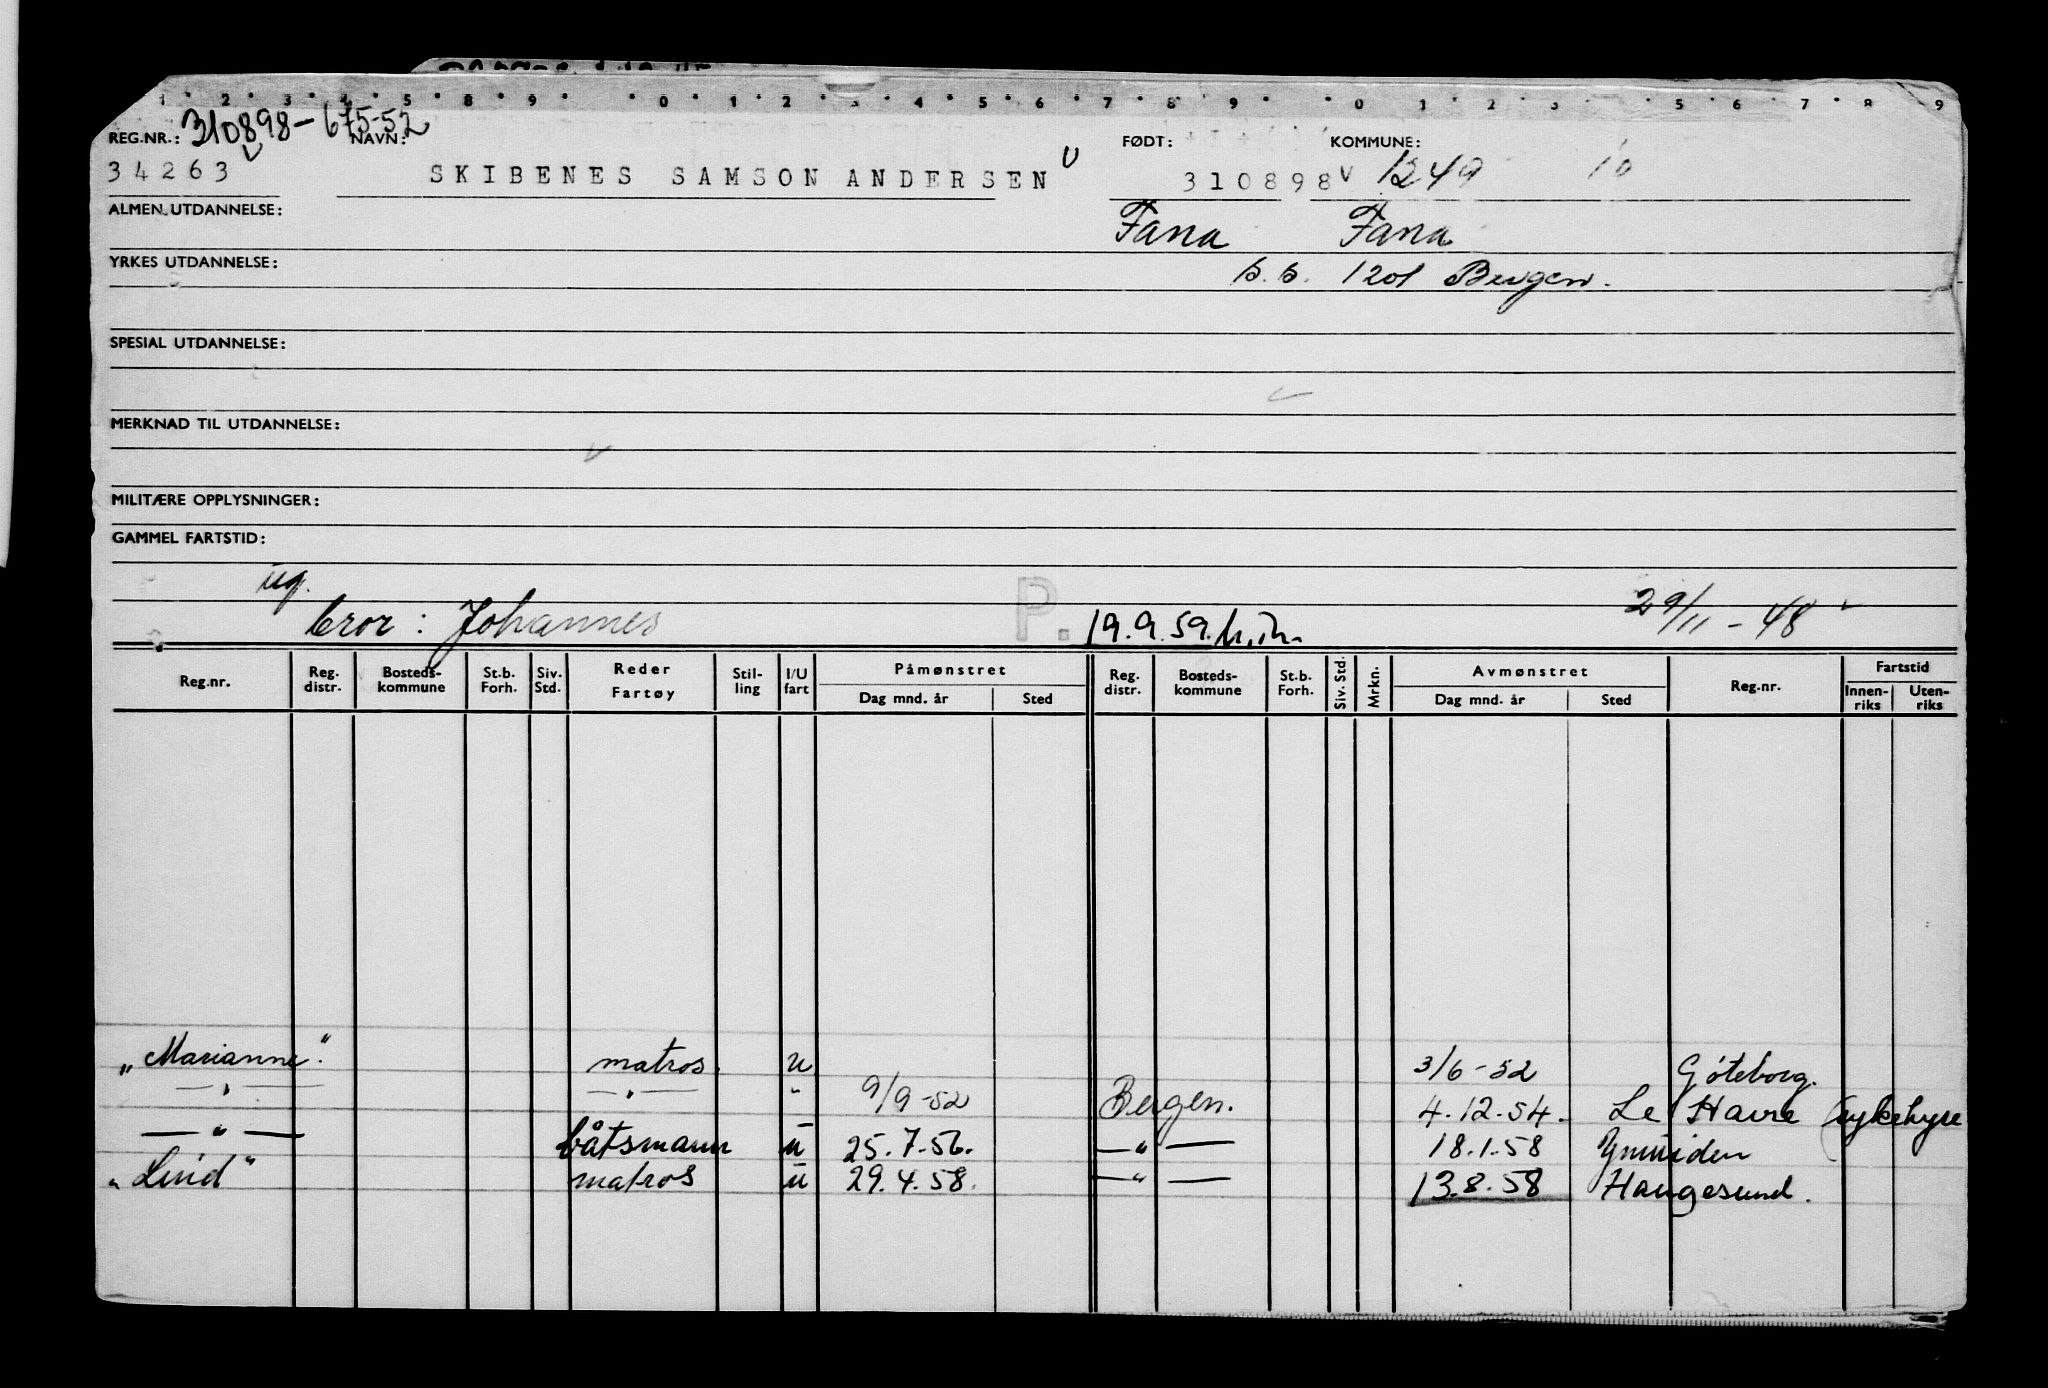 1 2 3 4 5 8 9 0 1 2 3 4 5 6 7 8 9 0 1 2 3 5 6 7 8 9
REG.NR.: 310898-675-52 NAVN: FØDT: KOMMUNE:
34263 SKIBENES SAMSON ANDERSEN 310898 1249 10
ALMEN UTDANNELSE: Fana Fana
YRKES UTDANNELSE: b.b. 1201 Bergen.
SPESIAL UTDANNELSE:
MERKNAD TIL UTDANNELSE:
MILITÆRE OPPLYSNINGER:
GAMMEL FARTSTID:
ug.
bror: Johannes P. 19.9.59. 29/11-48
Reg.nr. Reg. distr. Bosteds-kommune St.b. Forh. Siv. Std. Reder Fartøy Stil-ling I/U fart Påmønstret Dag mnd. år Sted Reg. distr. Bosteds-kommune St.b. Forh. Siv. Std. Mrkn. Avmønstret Dag mnd. år Sted Reg.nr. Fartstid Innen-riks Uten-riks
„Marianne" matros. u 3/6-52 Göteborg.
—"— —"— " 9/9-52 Bergen. 4.12.54. Le Havre (sykehyre
—"— båtsmann u 25.7.56. —"— 18.1.58 Ymuiden
„Lind" matros u 29.4.58. —"— 13.8.58 Haugesund.